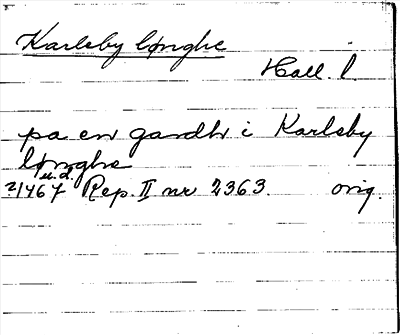 Karleby lønghe
Hall. l
pa en gardh i Karleby
lønghe
u.d.
?1467 Rep. II nr 2363. orig.